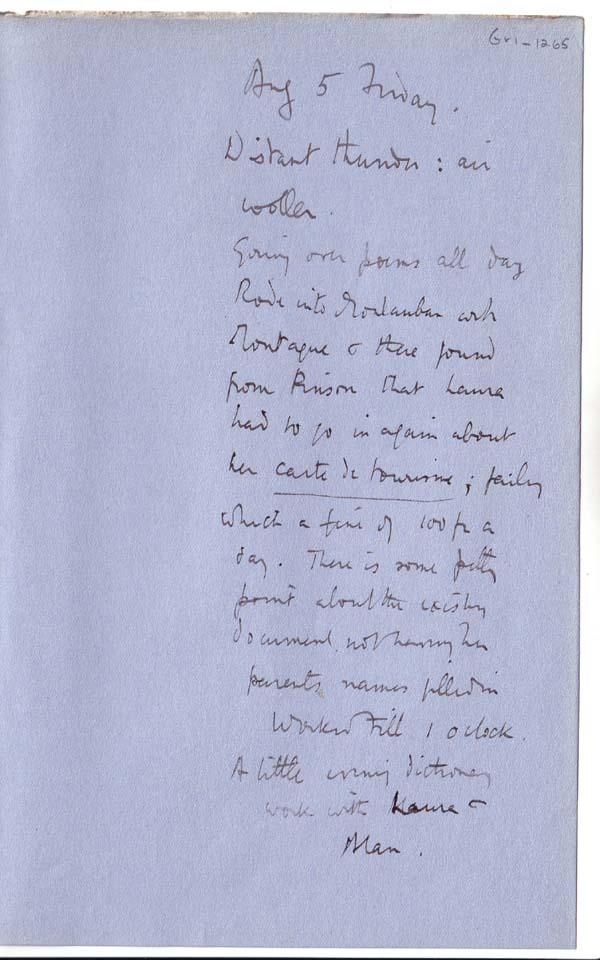 Gr1-1265
Aug 5 Friday.
Distant thunder : air
cooler.
Going over poems all day
Rode into Montauban with
Montague & there found
from Pinson that Laura
had to go in again about
her carte de tourisme ; failing
which a fine of 100 fr a
day. There is some petty
point about the existing
document not having her
parents names filled in
Worked till 1 o clock.
A little evening dictionary
work with Laura &
Alan.